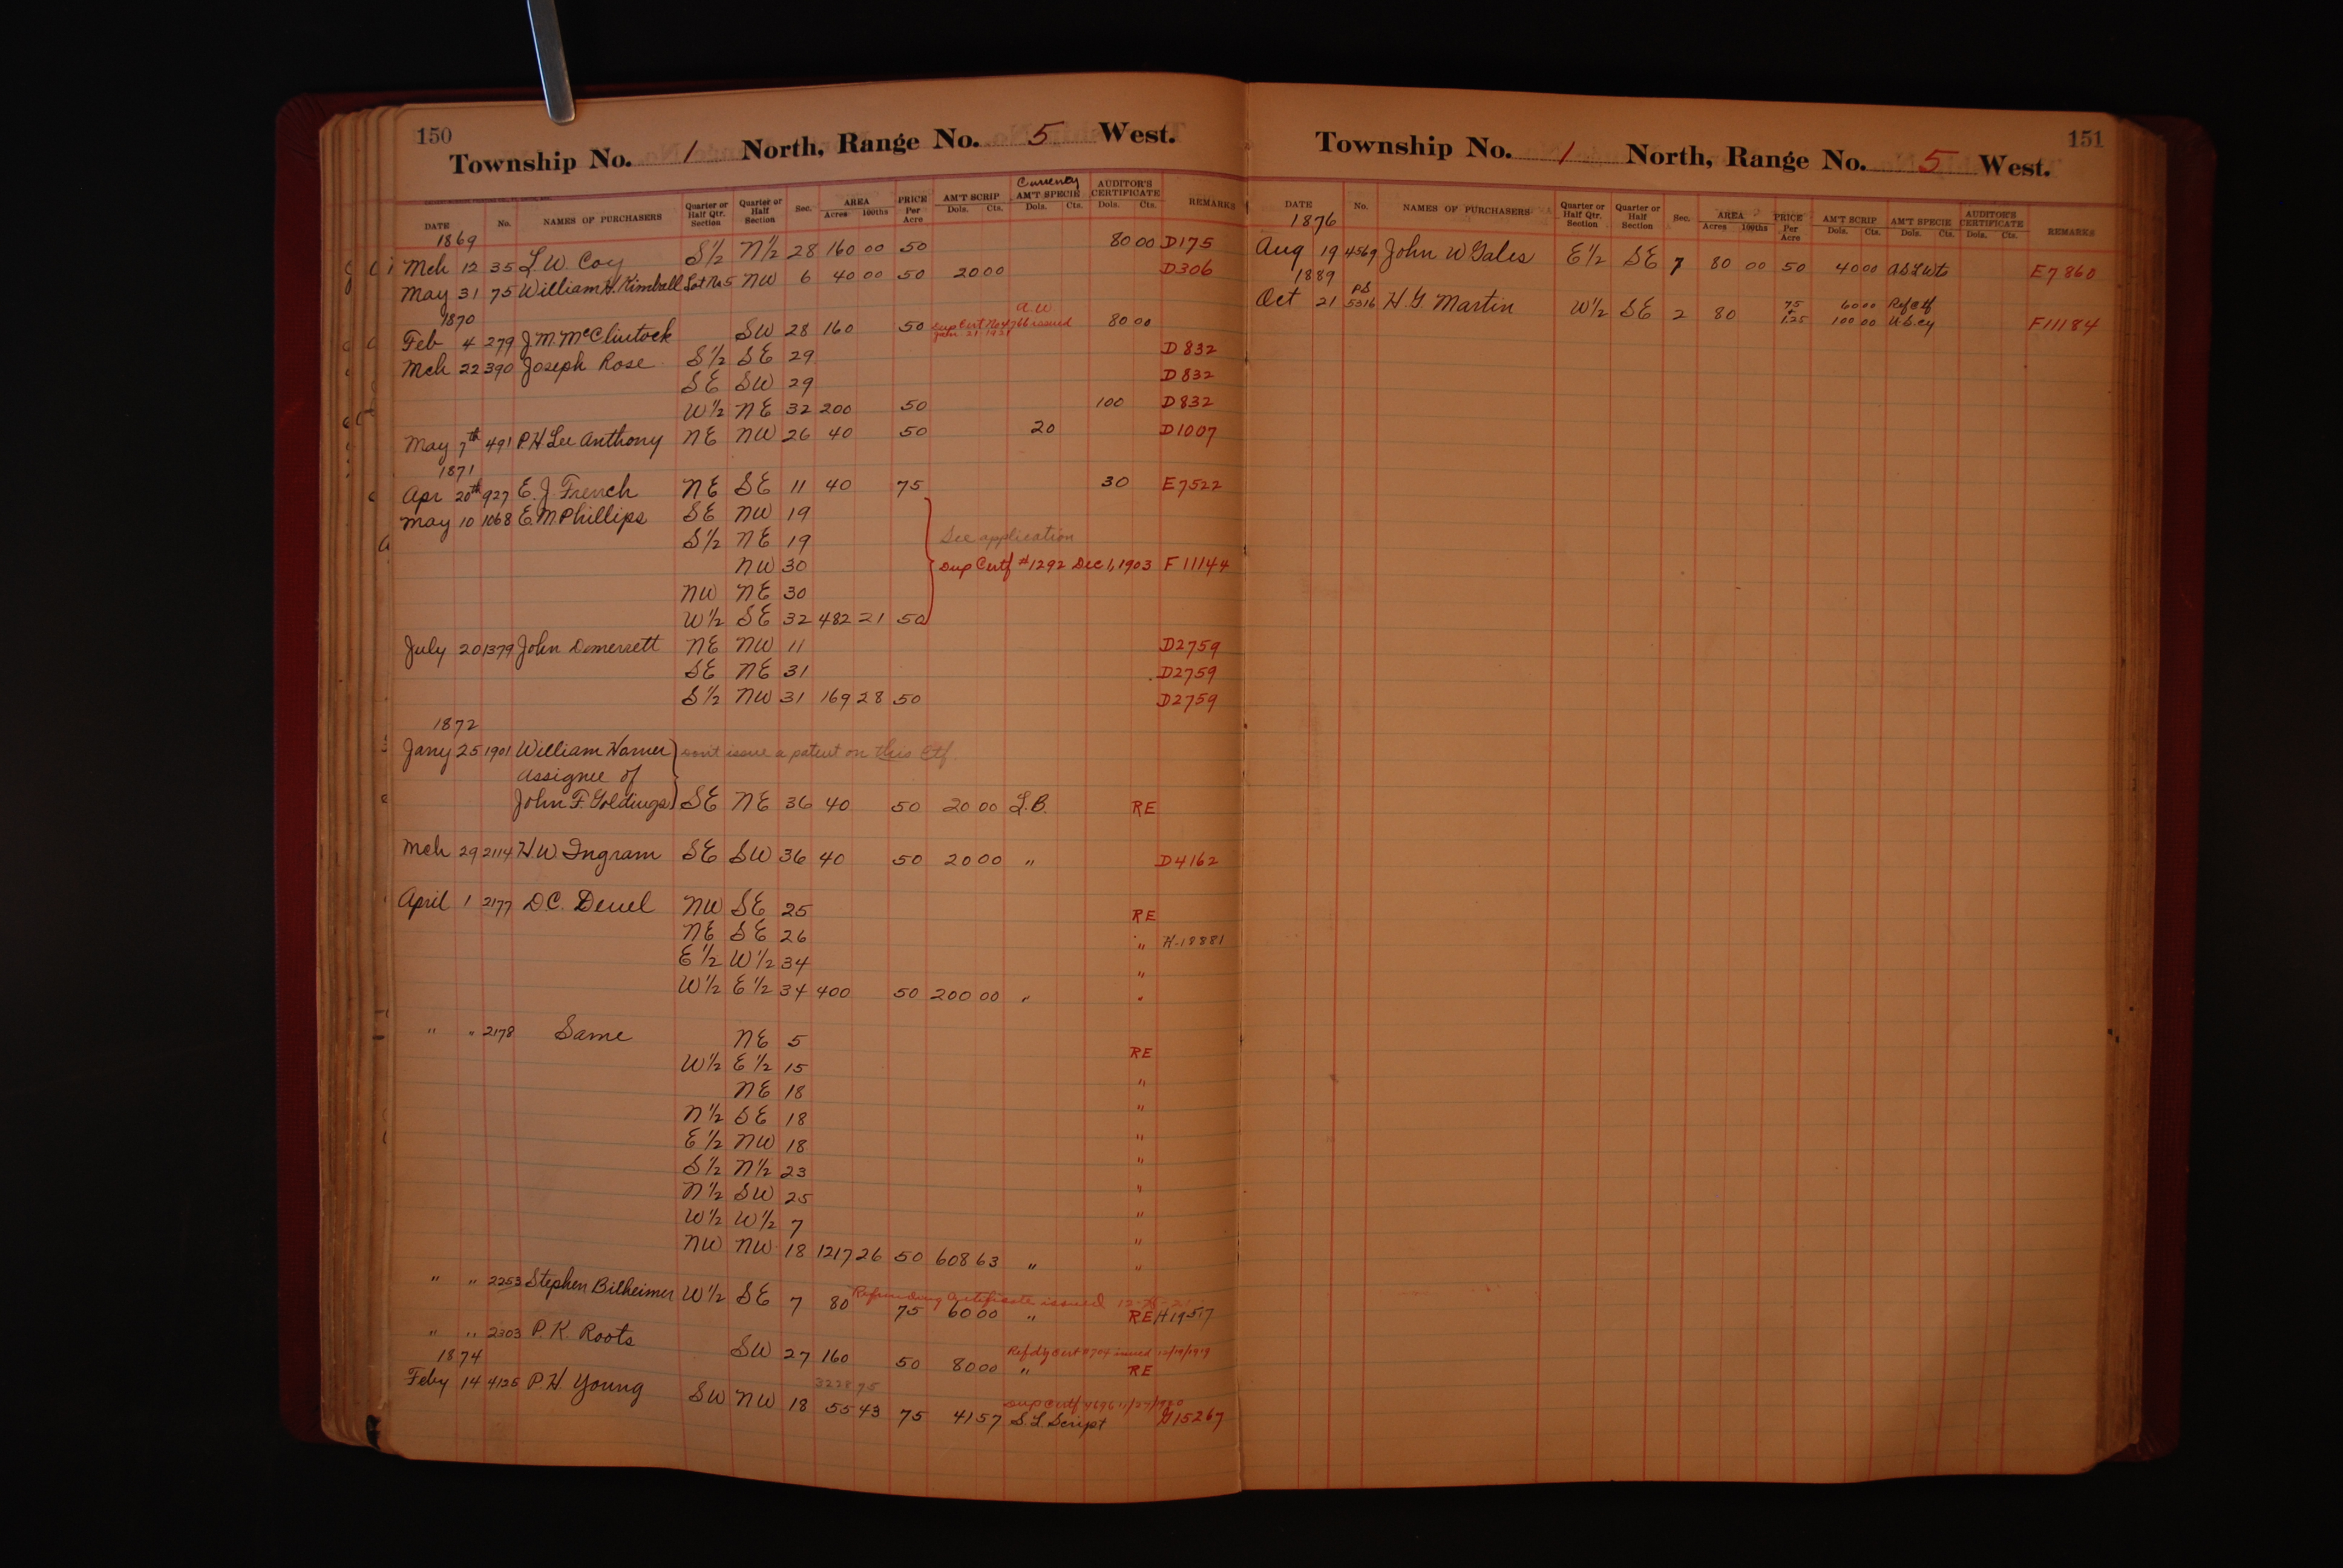 150
Township No. 1 North, Range No. 5 West.
DATE No. NAMES OF PURCHASERS Quarter or Half Qtr. Section Quarter or Half Section Sec. AREA Acres 100ths PRICE Per Acre AM'T SCRIP Dols. Cts. Currency AM'T SPECIE Dols. Cts. AUDITOR'S CERTIFICATE Dols. Cts. REMARKS
1869
Mch 12 35 L. W. Coy S½ N½ 28 160 00 50 80 00 D175
May 31 75 William H. Kimball Lot No 5 NW 6 40 00 50 20 00 D306
1870 A.W.
Feb 4 279 J. M. McClintock SW 28 160 50 Dup Cert No 4766 issued Jan. 21. 1931 80 00
Mch 22 390 Joseph Rose S½ SE 29 D832
SE SW 29 D832
W½ NE 32 200 50 100 D832
May 7th 491 P. H. Lee Anthony NE NW 26 40 50 20 D1007
1871
Apr 20th 927 E. J. French NE SE 11 40 75 30 E7522
May 10 1068 E. M. Phillips SE NW 19
S½ NE 19 See application
NW 30 Dup Certf #1292 Dec 1, 1903 F11144
NW NE 30
W½ SE 32 482 21 50
July 20 1379 John Demerrett NE NW 11 D2759
SE NE 31 D2759
S½ NW 31 169 28 50 D2759
1872
Jany 25 1901 William Warner Don't issue a patent on this Ctf.
Assignee of
John F. Goldings SE NE 36 40 50 20 00 L.B. RE
Mch 29 2114 H. W. Ingram SE SW 36 40 50 20 00 " D4162
April 1 2177 D C. Deuel NW SE 25 RE
NE SE 26 " H-18881
E½ W½ 34 "
W½ E½ 34 400 50 200 00 " "
" " 2178 Same NE 5 RE
W½ E½ 15 "
NE 18 "
N½ SE 18 "
E½ NW 18 "
S½ N½ 23 "
N½ SW 25 "
W½ W½ 7 "
NW NW 18 1217 26 50 608 63 " "
Refunding Certificate issued
" " 2253 Stephen Bilheimer W½ SE 7 80 75 60 00 " RE H19517
Refdg Cert #704 issued 12/19/1919
" " 2303 P. K. Roots SW 27 160 50 80 00 " RE
1874 3228 95
Feby 14 4125 P. H. Young SW NW 18 55 43 75 41 57 S. L. Script G15267
151
Township No. 1 North, Range No. 5 West.
DATE No. NAMES OF PURCHASERS Quarter or Half Qtr. Section Quarter or Half Section Sec. AREA Acres 100ths PRICE Per Acre AM'T SCRIP Dols. Cts. AM'T SPECIE Dols. Cts. AUDITOR'S CERTIFICATE Dols. Cts. REMARKS
1876
Aug 19 4569 John W Gales E½ SE 7 80 00 50 40 00 E7860
1889
Oct 21 PS 5316 H. G. Martin W½ SE 2 80 75 + 1.25 60 00 Ref Ctf 100 00 U.S. cy F11184